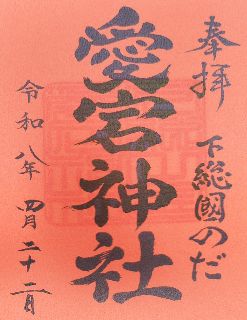 奉拝
下総國のだ
愛宕神社
令和八年 四月二十二日